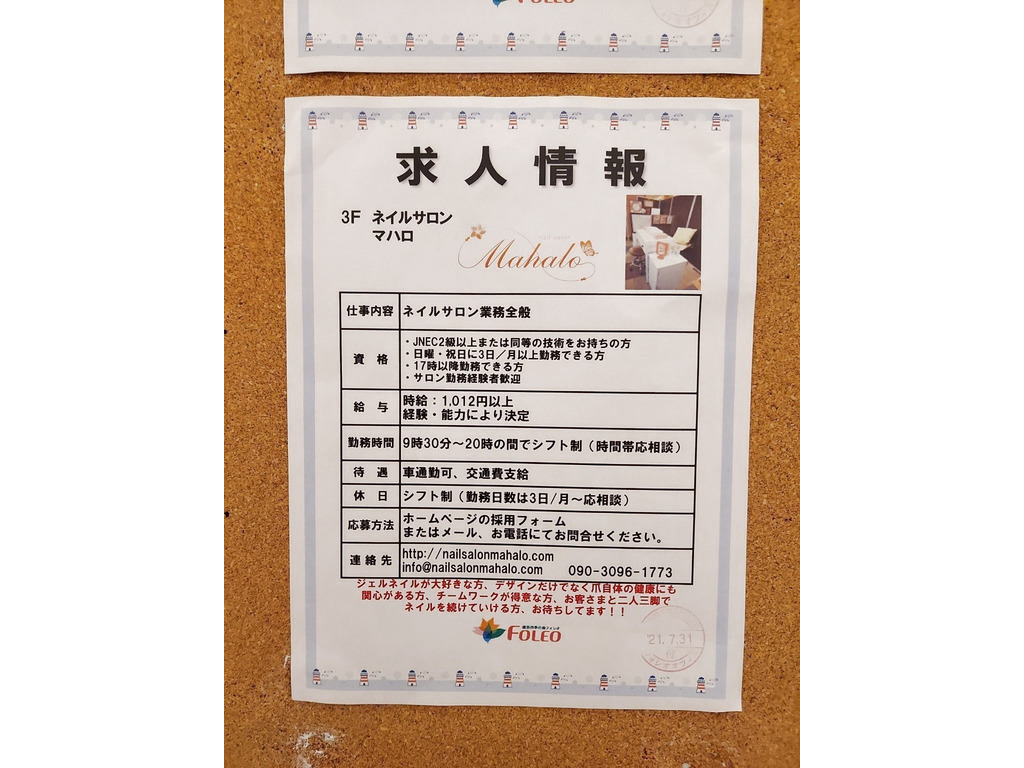 FOLEO
求人情報
3F ネイルサロン
マハロ
nail salon
Mahalo
仕事内容 ネイルサロン業務全般
資格
・JNEC2級以上または同等の技術をお持ちの方
・日曜・祝日に3日/月以上勤務できる方
・17時以降勤務できる方
・サロン勤務経験者歓迎
給与
時給：1,012円以上
経験・能力により決定
勤務時間 9時30分～20時の間でシフト制（時間帯応相談）
待遇 車通勤可、交通費支給
休日 シフト制（勤務日数は3日/月～応相談）
応募方法
ホームページの採用フォーム
またはメール、お電話にてお問合せください。
連絡先
http://nailsalonmahalo.com
info@nailsalonmahalo.com 090-3096-1773
ジェルネイルが大好きな方、デザインだけでなく爪自体の健康にも
関心がある方、チームワークが得意な方、お客さまと二人三脚で
ネイルを続けていける方、お待ちしてます！！
FOLEO
'21.7.31